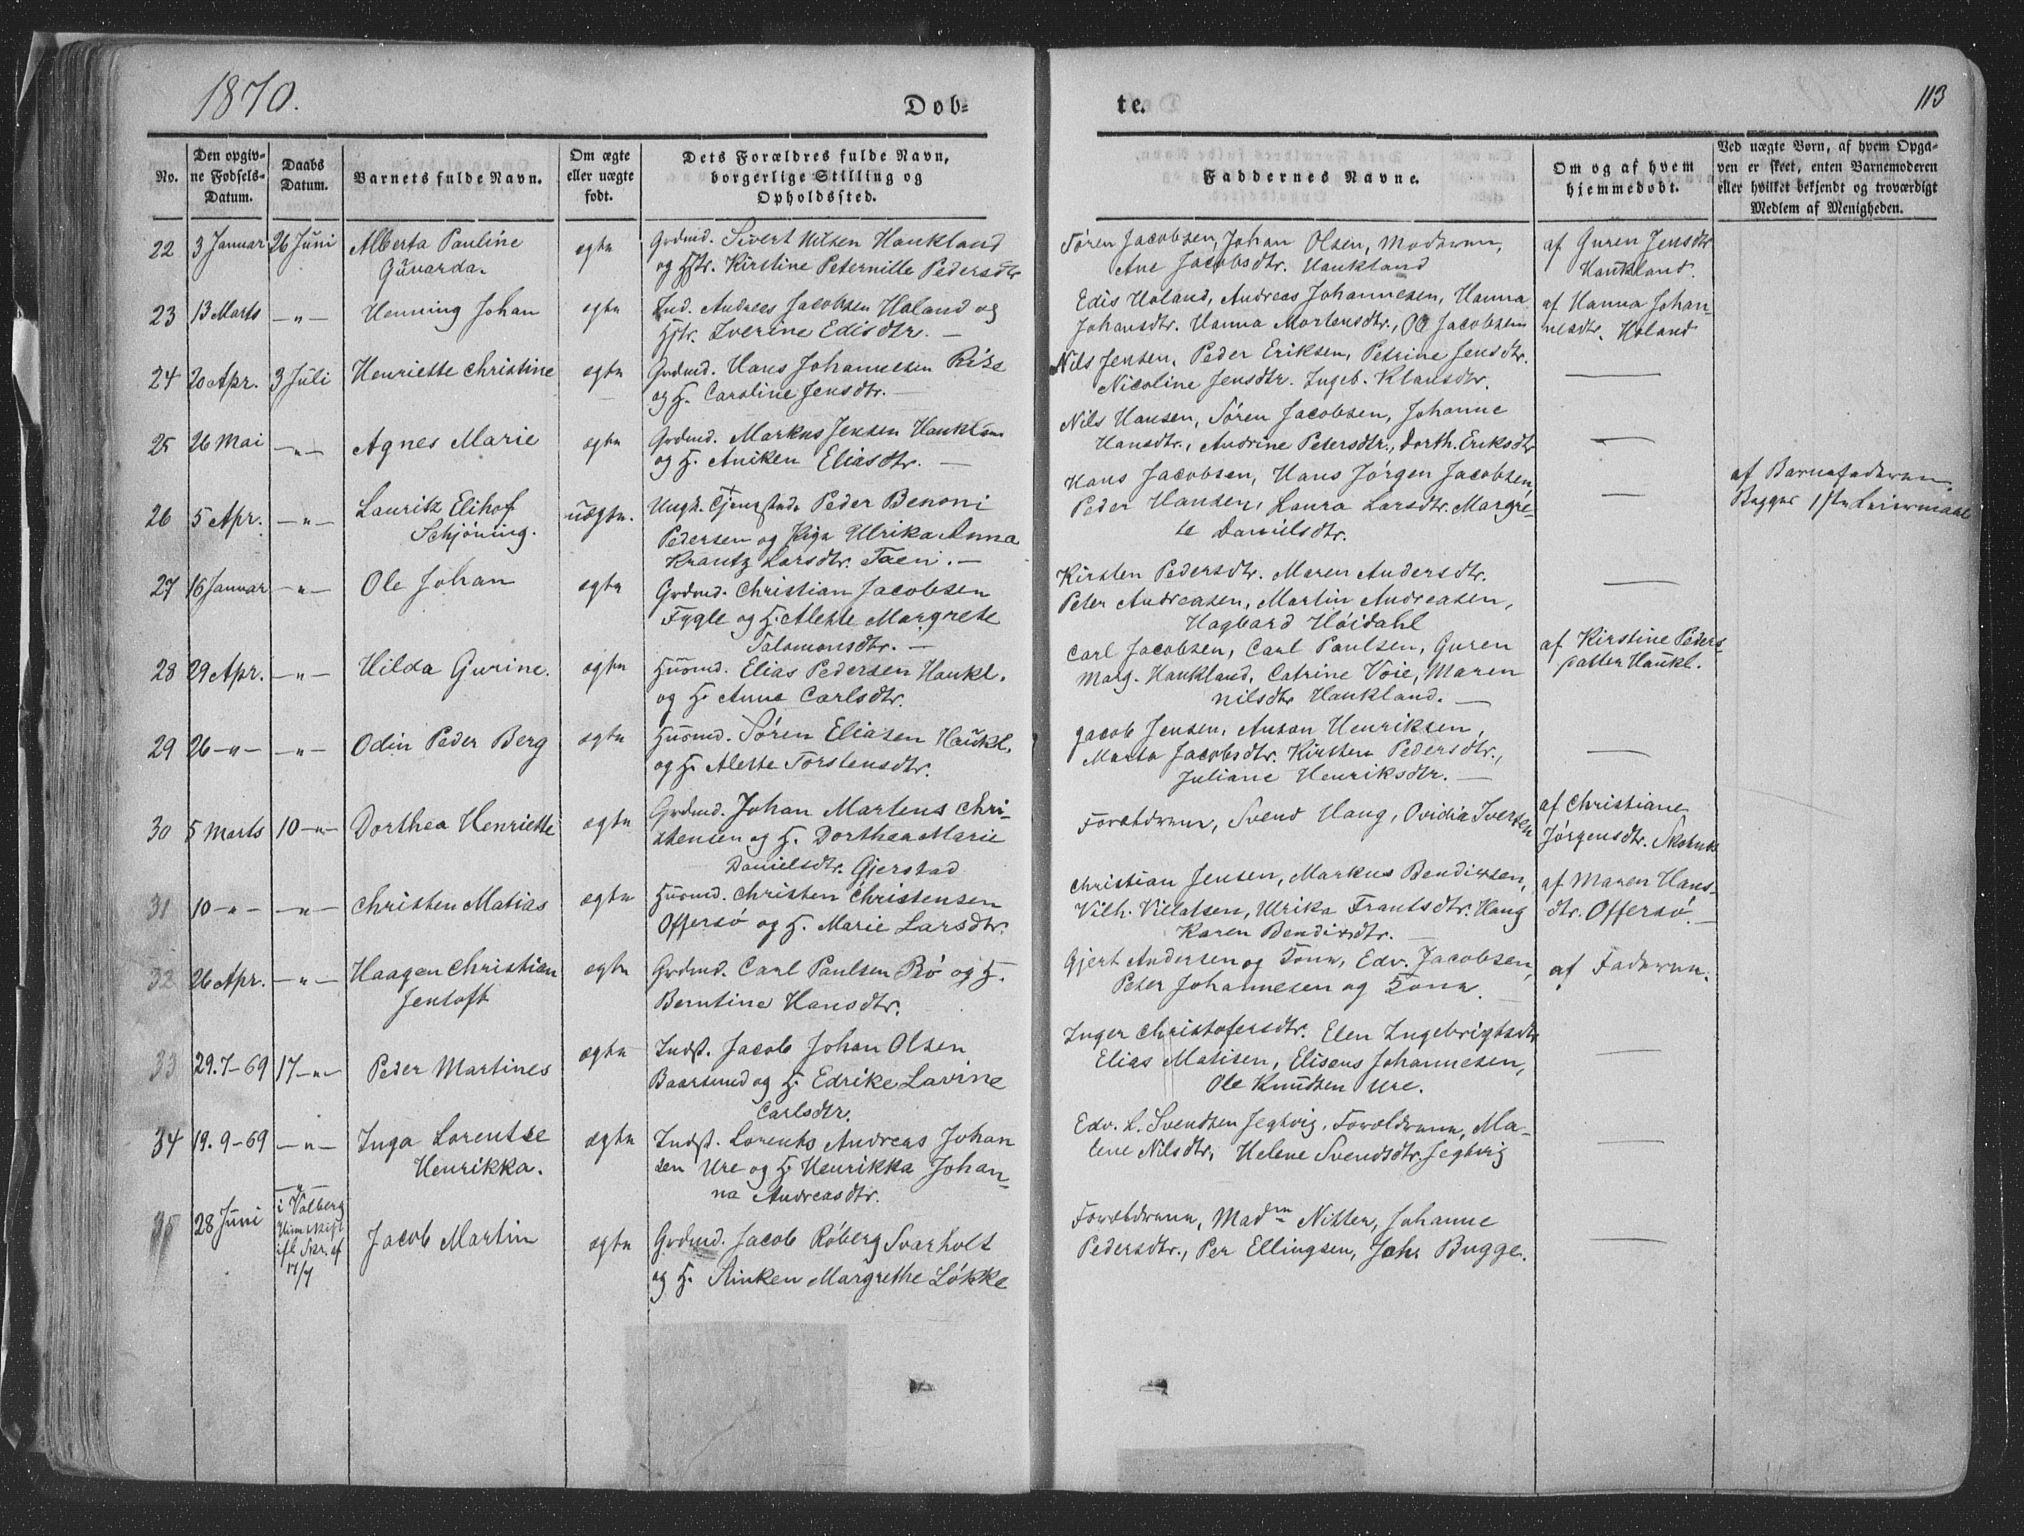 1870.
Døb-
te.
113
No.
Den opgiv-
ne Fødsels-
Datum.
Daabs
Datum.
Barnets fulde Navn.
Om ægte
eller uægte
født.
Dets Forældres fulde Navn,
borgerlige Stilling og
Opholdssted.
Faddernes Navne.
Om og af hvem
hjemmedøbt.
Ved uægte Børn, af hvem Opga-
ven er skeet, enten Barnemoderen
eller hvilket bekjendt og troværdigt
Medlem af Menigheden.
22 3 Januar 26 Juni Alberta Pauline
Guvarda.
ægte
Grdmd. Sivert Nilsen Haukland
og Hstr. Kirstine Peternille Pedersdtr
Søren Jacobsen, Johan Olsen, Moderen,
Ane Jacobsdtr. Haukland
af Guren Jensdtr
Haukland.
23 13 Marts -"- Henning Johan
ægte
Ind. Andreas Jacobsen Holand og
Hstr. Iverine Edisdtr. —
Edis Holand, Andreas Johannesen, Hanna
Johansdtr. Hanna Mortensdtr., Ol Jacobsen
af Hanna Johan-
nesdtr. Holand
24 20 Apr. 3 Juli Henriette Christine
ægte
Grdmd. Hans Johannesen Rise
og H. Caroline Jensdtr. —
Nils Jensen, Peder Eriksen, Petrine Jensdtr.
Nicoline Jensdtr. Ingeb. Klausdtr.
25 26 Mai -"- Agnes Marie
ægte
Grdmd. Markus Jensen Haukland
og H. Aniken Eliasdtr. —
Nils Hansen, Søren Jacobsen, Johanne
Hansdtr., Andrine Petersdtr., Dorth. Eriksdtr
26 5 Apr. -"- Lauritz Elihof
Schjöning.
uægte.
Ungk. Peder Benoni
Pedersen og Pige Ulrika Anna
Krantz Larsdtr. Taen. —
Hans Jacobsen, Hans Jørgen Jacobsen,
Peder Hansen, Laura Larsdtr. Margre-
te Danielsdtr.
af Barnefaderen.
Begges 1ste Leiermaal
27 16 Januar -"- Ole Johan
ægte
Grdmd. Christian Jacobsen
Fygle og H. Alette Margrete
Salomonsdtr. —
Kirsten Pedersdtr. Maren Andersdtr.
Peter Andreasen, Martin Andreasen,
Hagbard Høidahl
28 29 Apr. -"- Hilda Gurine.
ægte
Husmd. Elias Pedersen Haukl.
og H. Anne Carlsdtr.
Carl Jacobsen, Carl Paulsen, Guren
Marg. Haukland, Catrine Voie, Maren
Nilsdtr Haukland. —
af Kirstine Peders-
datter Haukl.
29 26 -"- -"- Odin Peder Berg
ægte
Husmd. Søren Eliasen Haukl.
og H. Alette Torstensdtr.
Jacob Jensen, Anton Henriksen,
Marta Jacobsdtr. Kirsten Pedersdtr.,
Juliane Henriksdtr. —
30 5 Marts 10 -"- Dorthea Henriette
ægte
Grdmd. Johan Martens Chri-
stensen og H. Dorthea Marie
Danielsdtr. Gjerstad
Forældrene, Svend Haug, Ovidia Iversen
af Christiane
Jørgensdtr.
31 10 -"- -"- Christen Matias
ægte
Husmd. Christen Christensen
Offersø og H. Marie Larsdtr.
Christian Jensen, Markus Bendixsen,
Vilh. Villatsen, Ulrika Frantsdtr. Haug
Karen Bendixdtr. —
af Maren Hans-
dtr. Offersø. —
32 26 Apr. -"- Haagen Christian
Jentoft
ægte
Grdmd. Carl Paulsen Bø og H.
Berntine Hansdtr.
Gjert Andersen og Kone, Edv. Jacobsen,
Peter Johannesen og Kone.
af Faderen.
33 29.7-69 17 -"- Peder Martines
ægte
Indst. Jacob Johan Olsen
Baarsund og H. Edrike Lavine
Carlsdtr.
Inger Christofersdtr. Elen Ingebrigtsdtr
Elias Matisen, Eliseus Johannesen,
Ole Knudsen Ure.
34 19.9-69 -"- Inga Lorentse
Henrikka.
ægte
Indst. Lorents Andreas Johan
sen Ure og H. Henrikka Johan-
na Andreasdtr.
Edv. L. Svendsen Jeghvig. Forældrene, Ma-
lene Nilsdtr, Helene Svendsdtr. Jeghvig
35 28 Juni
-"-
i Valberg
ifl Skr. af
17/7
Jacob Martin
ægte
Grdmd. Jacob Røberg Svarholt
og H. Rinken Margrethe Løkke
Forældrene, Madm Nitter, Johanne
Pedersdtr., Per Ellingsen, Johs Bugge.